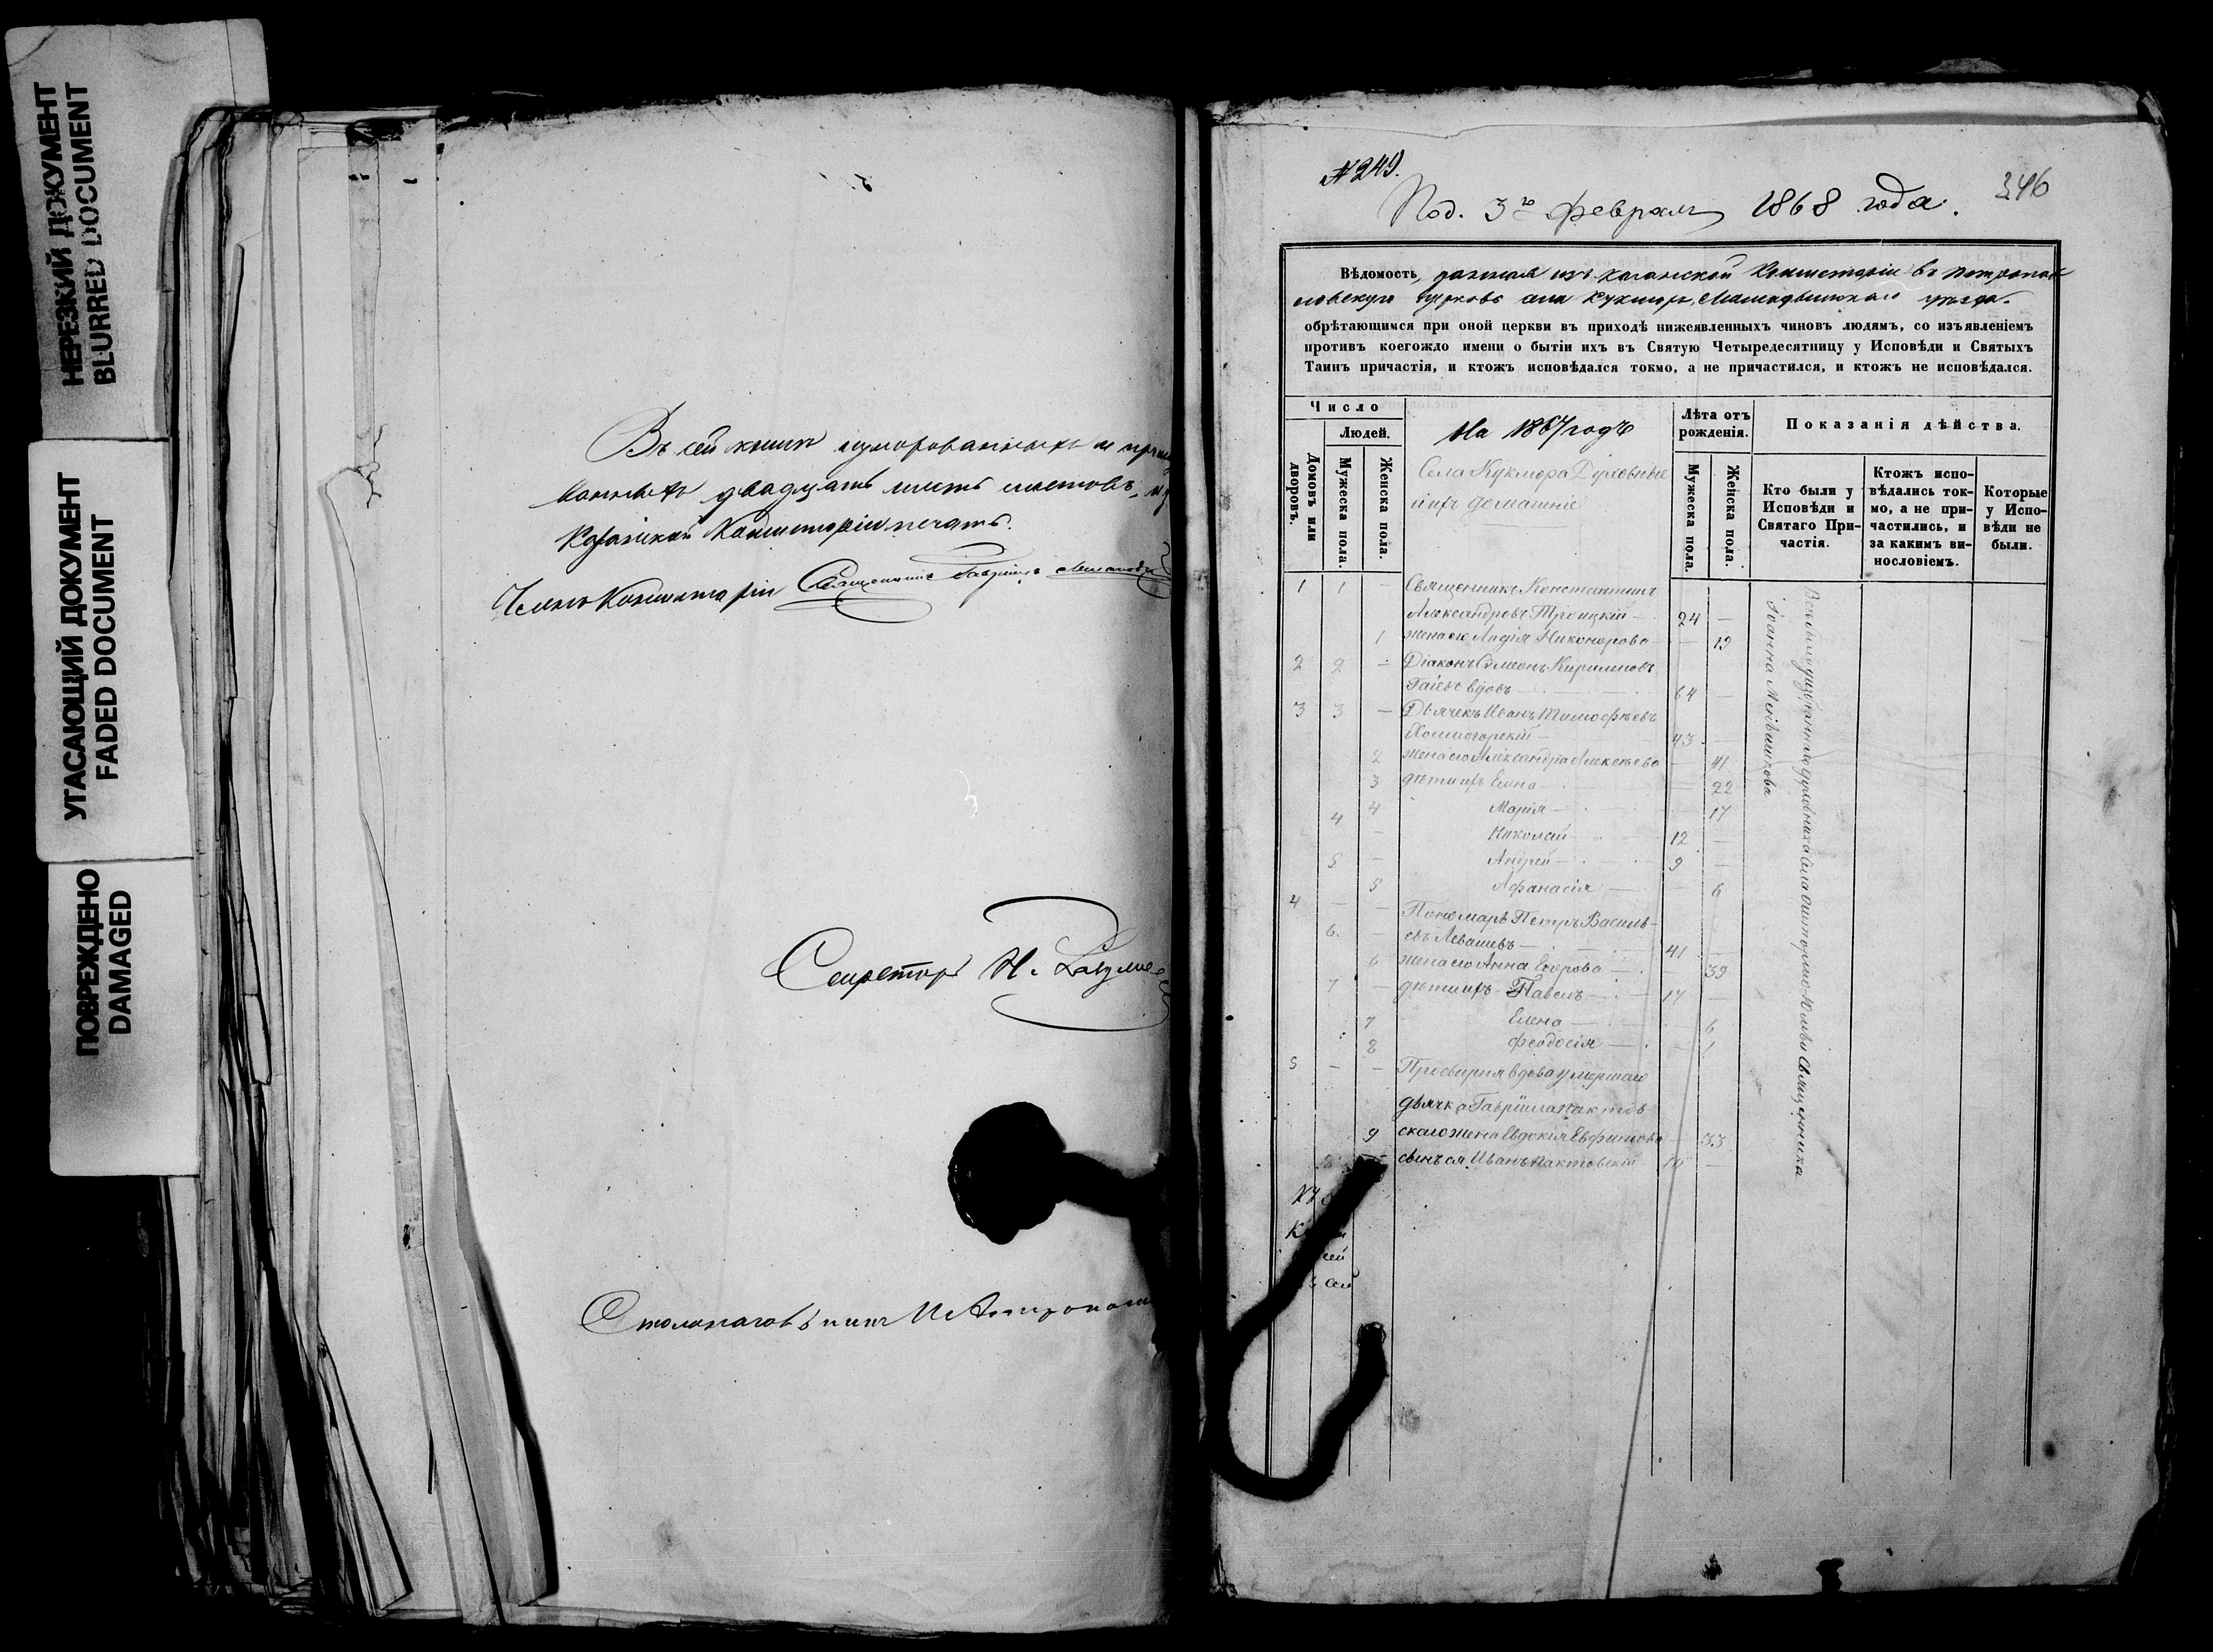 НЕРЕЗКИЙ ДОКУМЕНТ
BLURRED DOCUMENT
УГАСАЮЩИЙ ДОКУМЕНТ
FADED DOCUMENT
ПОВРЕЖДЕНО
DAMAGED
Въ сей книгѣ нумерованныхъ и
двадцать шесть листовъ, и
Казанской Консисторіи печать.
Членъ Консисторіи Священникъ Гавріилъ
Секретарь Н. Разумо
Столоначальникъ
№ 249.
346
Под. 3го февраля 1868 года.
Вѣдомость, данная изъ Казанской Консисторіи въ Петропав
ловскую церковь села Кукмора, Мамадышскаго уѣзда.
обрѣтающимся при оной церкви въ приходѣ нижеявленныхъ чиновъ людямъ, со изъявленіемъ
противъ коегождо имени о бытіи ихъ въ Святую Четыредесятницу у Исповѣди и Святыхъ
Таинъ причастія, и ктожъ исповѣдался токмо, а не причастился, и ктожъ не исповѣдался.
Число
Людей.
Домовъ или дворовъ.
Мужеска пола.
Женска пола.
На 1867 годъ
Села Кукмора Духовные
и ихъ домашніе
Лѣта отъ рожденія.
Мужеска пола.
Женска пола.
Показанія дѣйства.
Кто были у Исповѣди и Святаго Причастія.
Ктожъ исповѣдались токмо, а не причастились, и за какимъ винословіемъ.
Которые у Исповѣди не были.
1 1 — Священникъ Константинъ
Александровъ Троицкій — 24 —
1 жена его Лидія Никонорова — 19
2 2 — Діаконъ Симеонъ Кирилловъ
Гаіевъ вдовъ — 64 —
3 3 — Дьячекъ Иванъ Тимофѣевъ
Холмогорскій — 43 —
2 жена его Александра Алексѣева — 41
3 дѣти ихъ Елена — 22
4 Марія — 17
4 — Николай 12 —
5 — Андрей — 9 —
5 Афанасія — 6
4 — — Пономарь Петръ Василь-
6 — евъ Левашевъ — 41 —
6 жена его Анна Егорова — 39
7 — дѣти ихъ Павелъ — 17 —
7 Елена — 6
8 Феодосія — 1
5 — — Просвирня вдова умершаго
дьячка Гавріила Пактов-
9 скаго жена Евдокія Евфимова — 33
8 — сынъ ея Иванъ Пактовскій 10 —
Іоанна Меньшикова
Священника